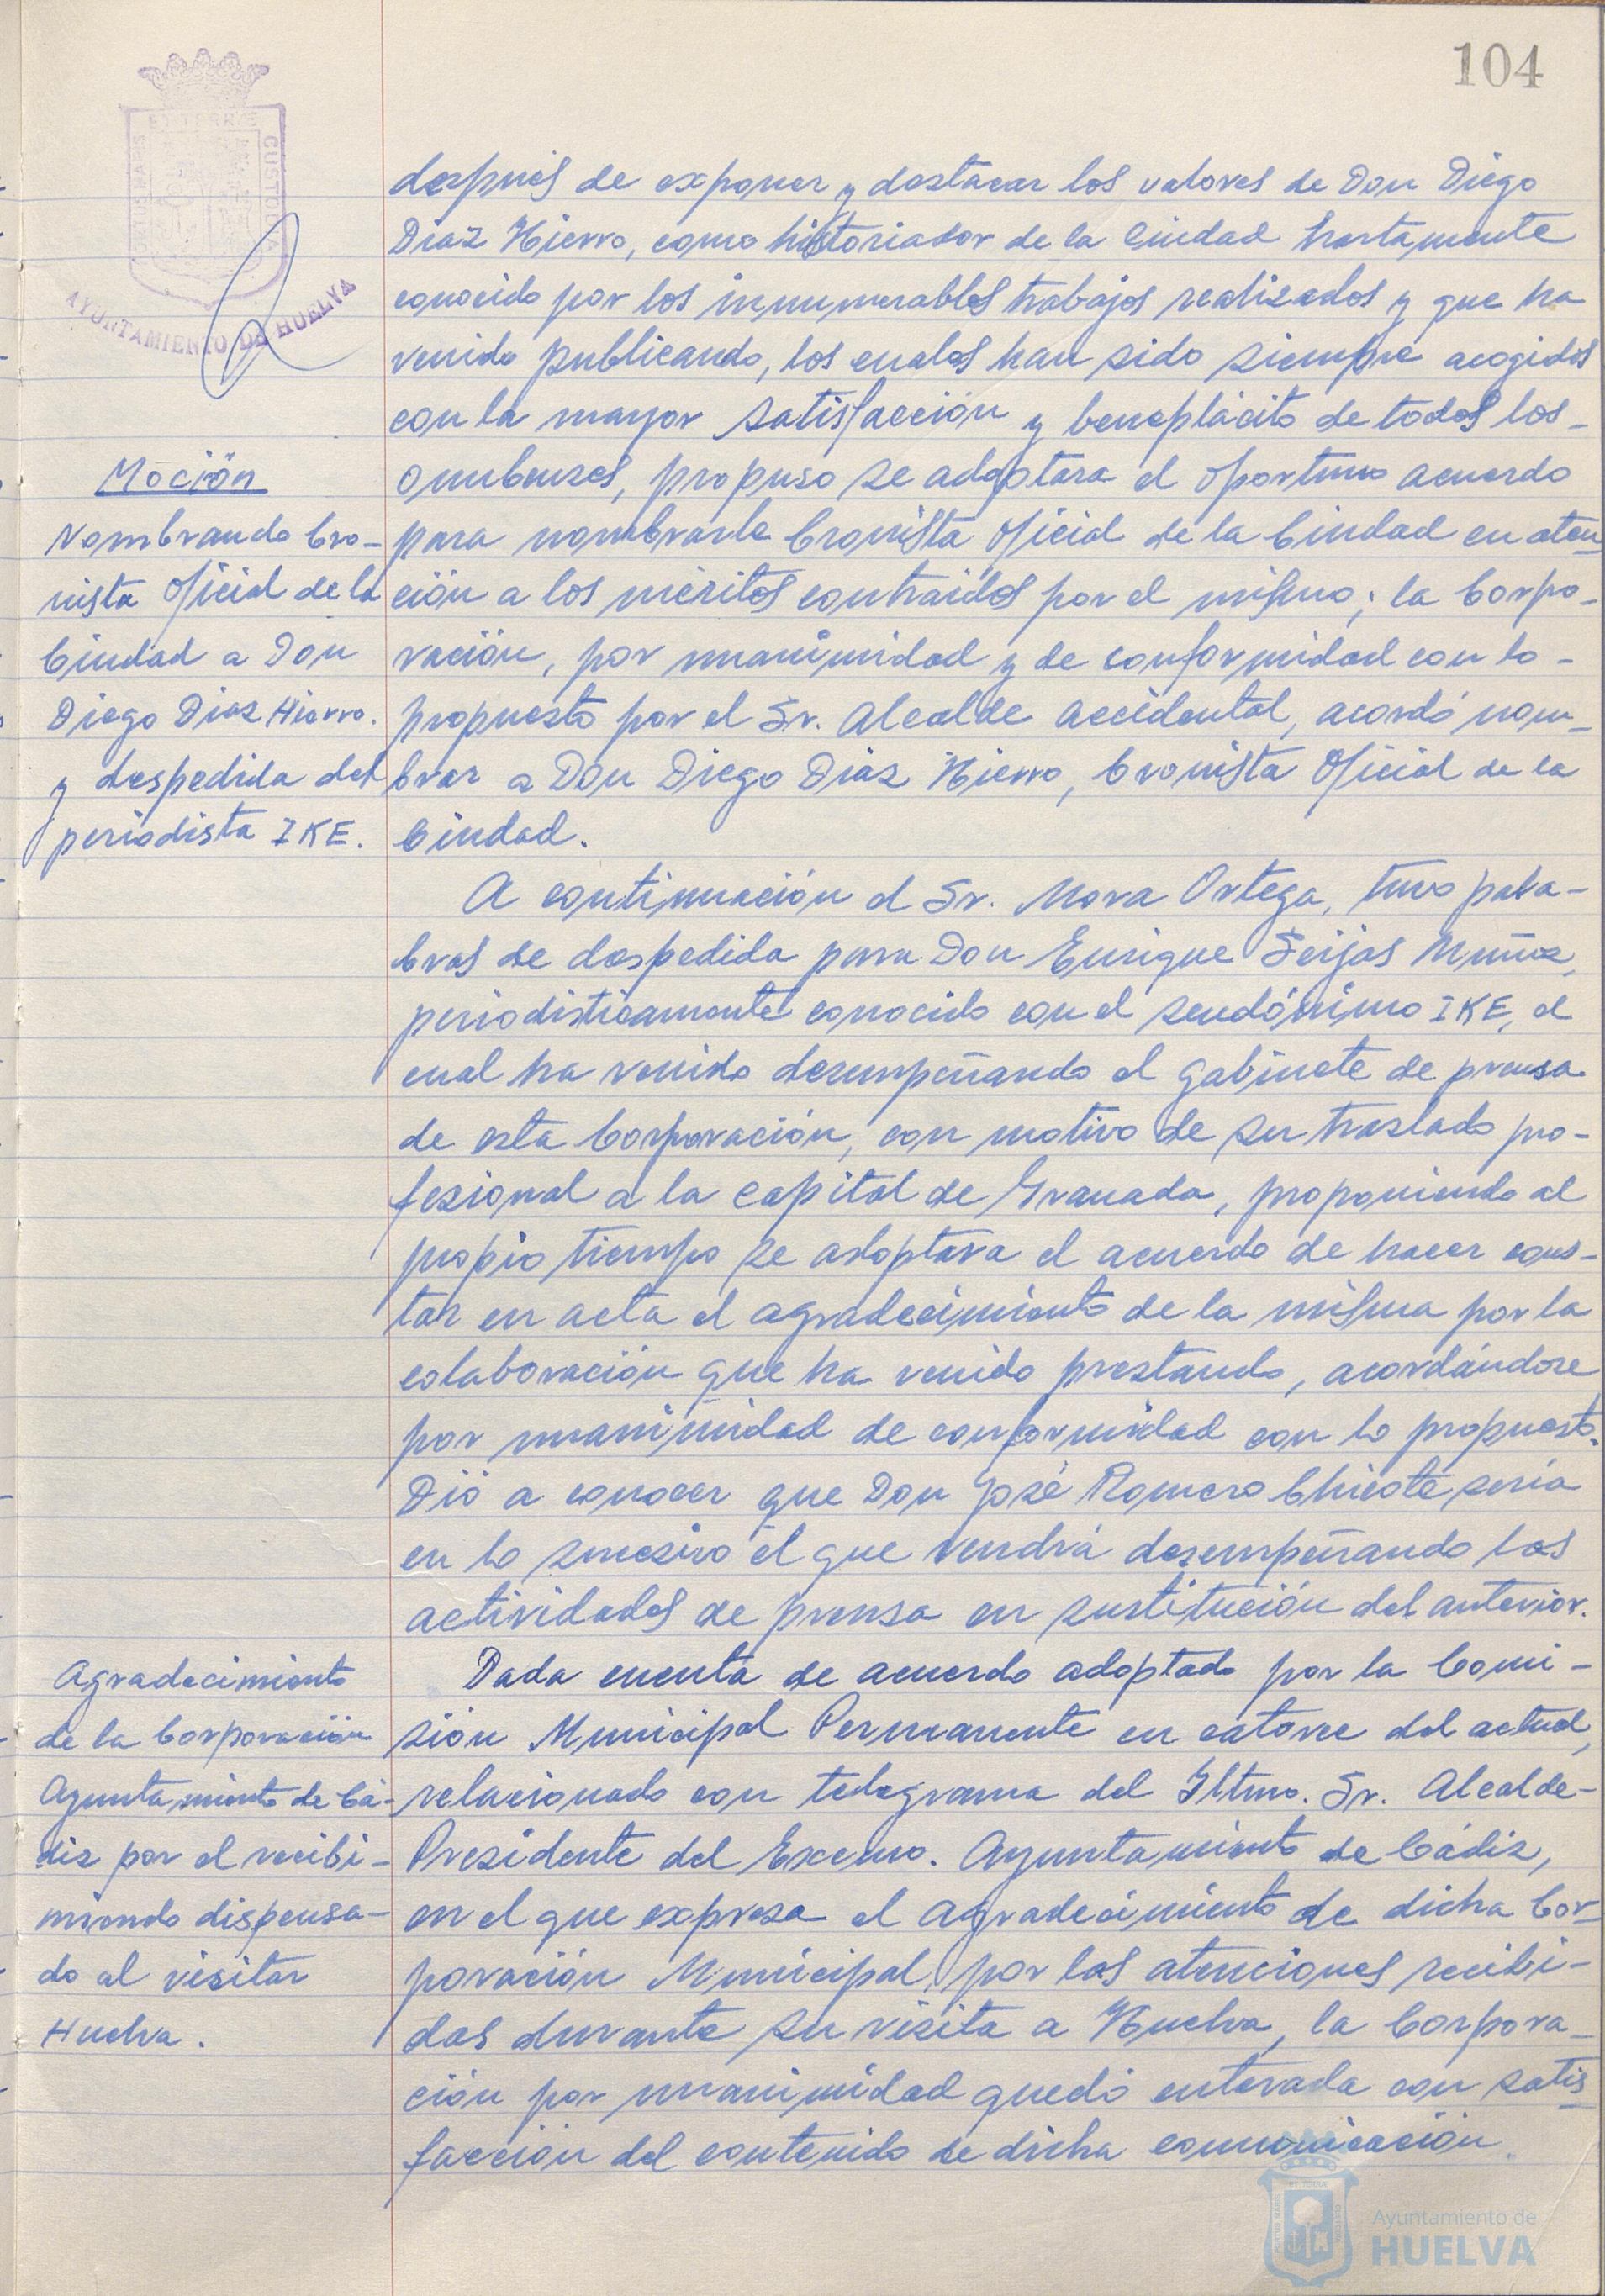 104
PORTUS MARIS ET TERRÆ CUSTODIA
AYUNTAMIENTO DE HUELVA
después de exponer y destacar los valores de Don Diego
Díaz Hierro, como historiador de la Ciudad hartamente
conocido por los innumerables trabajos realizados y que ha
venido publicando, los cuales han sido siempre acogidos
con la mayor satisfacción y beneplácito de todos los-
onubenses, propuso se adoptara el oportuno acuerdo
para nombrarle Cronista Oficial de la Ciudad en aten-
ción a los méritos contraídos por el mismo; la Corpo-
ración, por unanimidad y de conformidad con lo-
propuesto por el Sr. Alcalde accidental, acordó nom-
brar a Don Diego Díaz Hierro, Cronista Oficial de la
Ciudad.
Moción
Nombrando Cro-
nista Oficial de la
Ciudad a Don
Diego Díaz Hierro.
y despedida del
periodista IKE.
A continuación el Sr. Mora Ortega, tuvo pala-
bras de despedida para Don Enrique Seijas Muñoz,
periodísticamente conocido con el seudónimo IKE, el
cual ha venido desempeñando el gabinete de prensa
de esta Corporación, con motivo de su traslado pro-
fesional a la capital de Granada, proponiendo al
propio tiempo se adoptara el acuerdo de hacer cons-
tar en acta el agradecimiento de la misma por la
colaboración que ha venido prestando, acordándose
por unanimidad de conformidad con lo propuesto.
Dió a conocer que Don José Romero Chicote sería
en lo sucesivo el que vendrá desempeñando las
actividades de prensa en sustitución del anterior.
Agradecimiento
de la Corporación
Ayuntamiento de Cá-
diz por el recibi-
miendo dispensa-
do al visitar
Huelva.
Dada cuenta de acuerdo adoptado por la Comi-
sión Municipal Permanente en catorce del actual,
relacionado con telegrama del Iltmo. Sr. Alcalde-
Presidente del Excmo. Ayuntamiento de Cádiz,
en el que expresa el agradecimiento de dicha Cor-
poración Municipal, por las atenciones recibi-
das durante su visita a Huelva, la Corpora-
ción por unanimidad quedó enterada con satis-
facción del contenido de dicha comunicación.
Ayuntamiento de
HUELVA